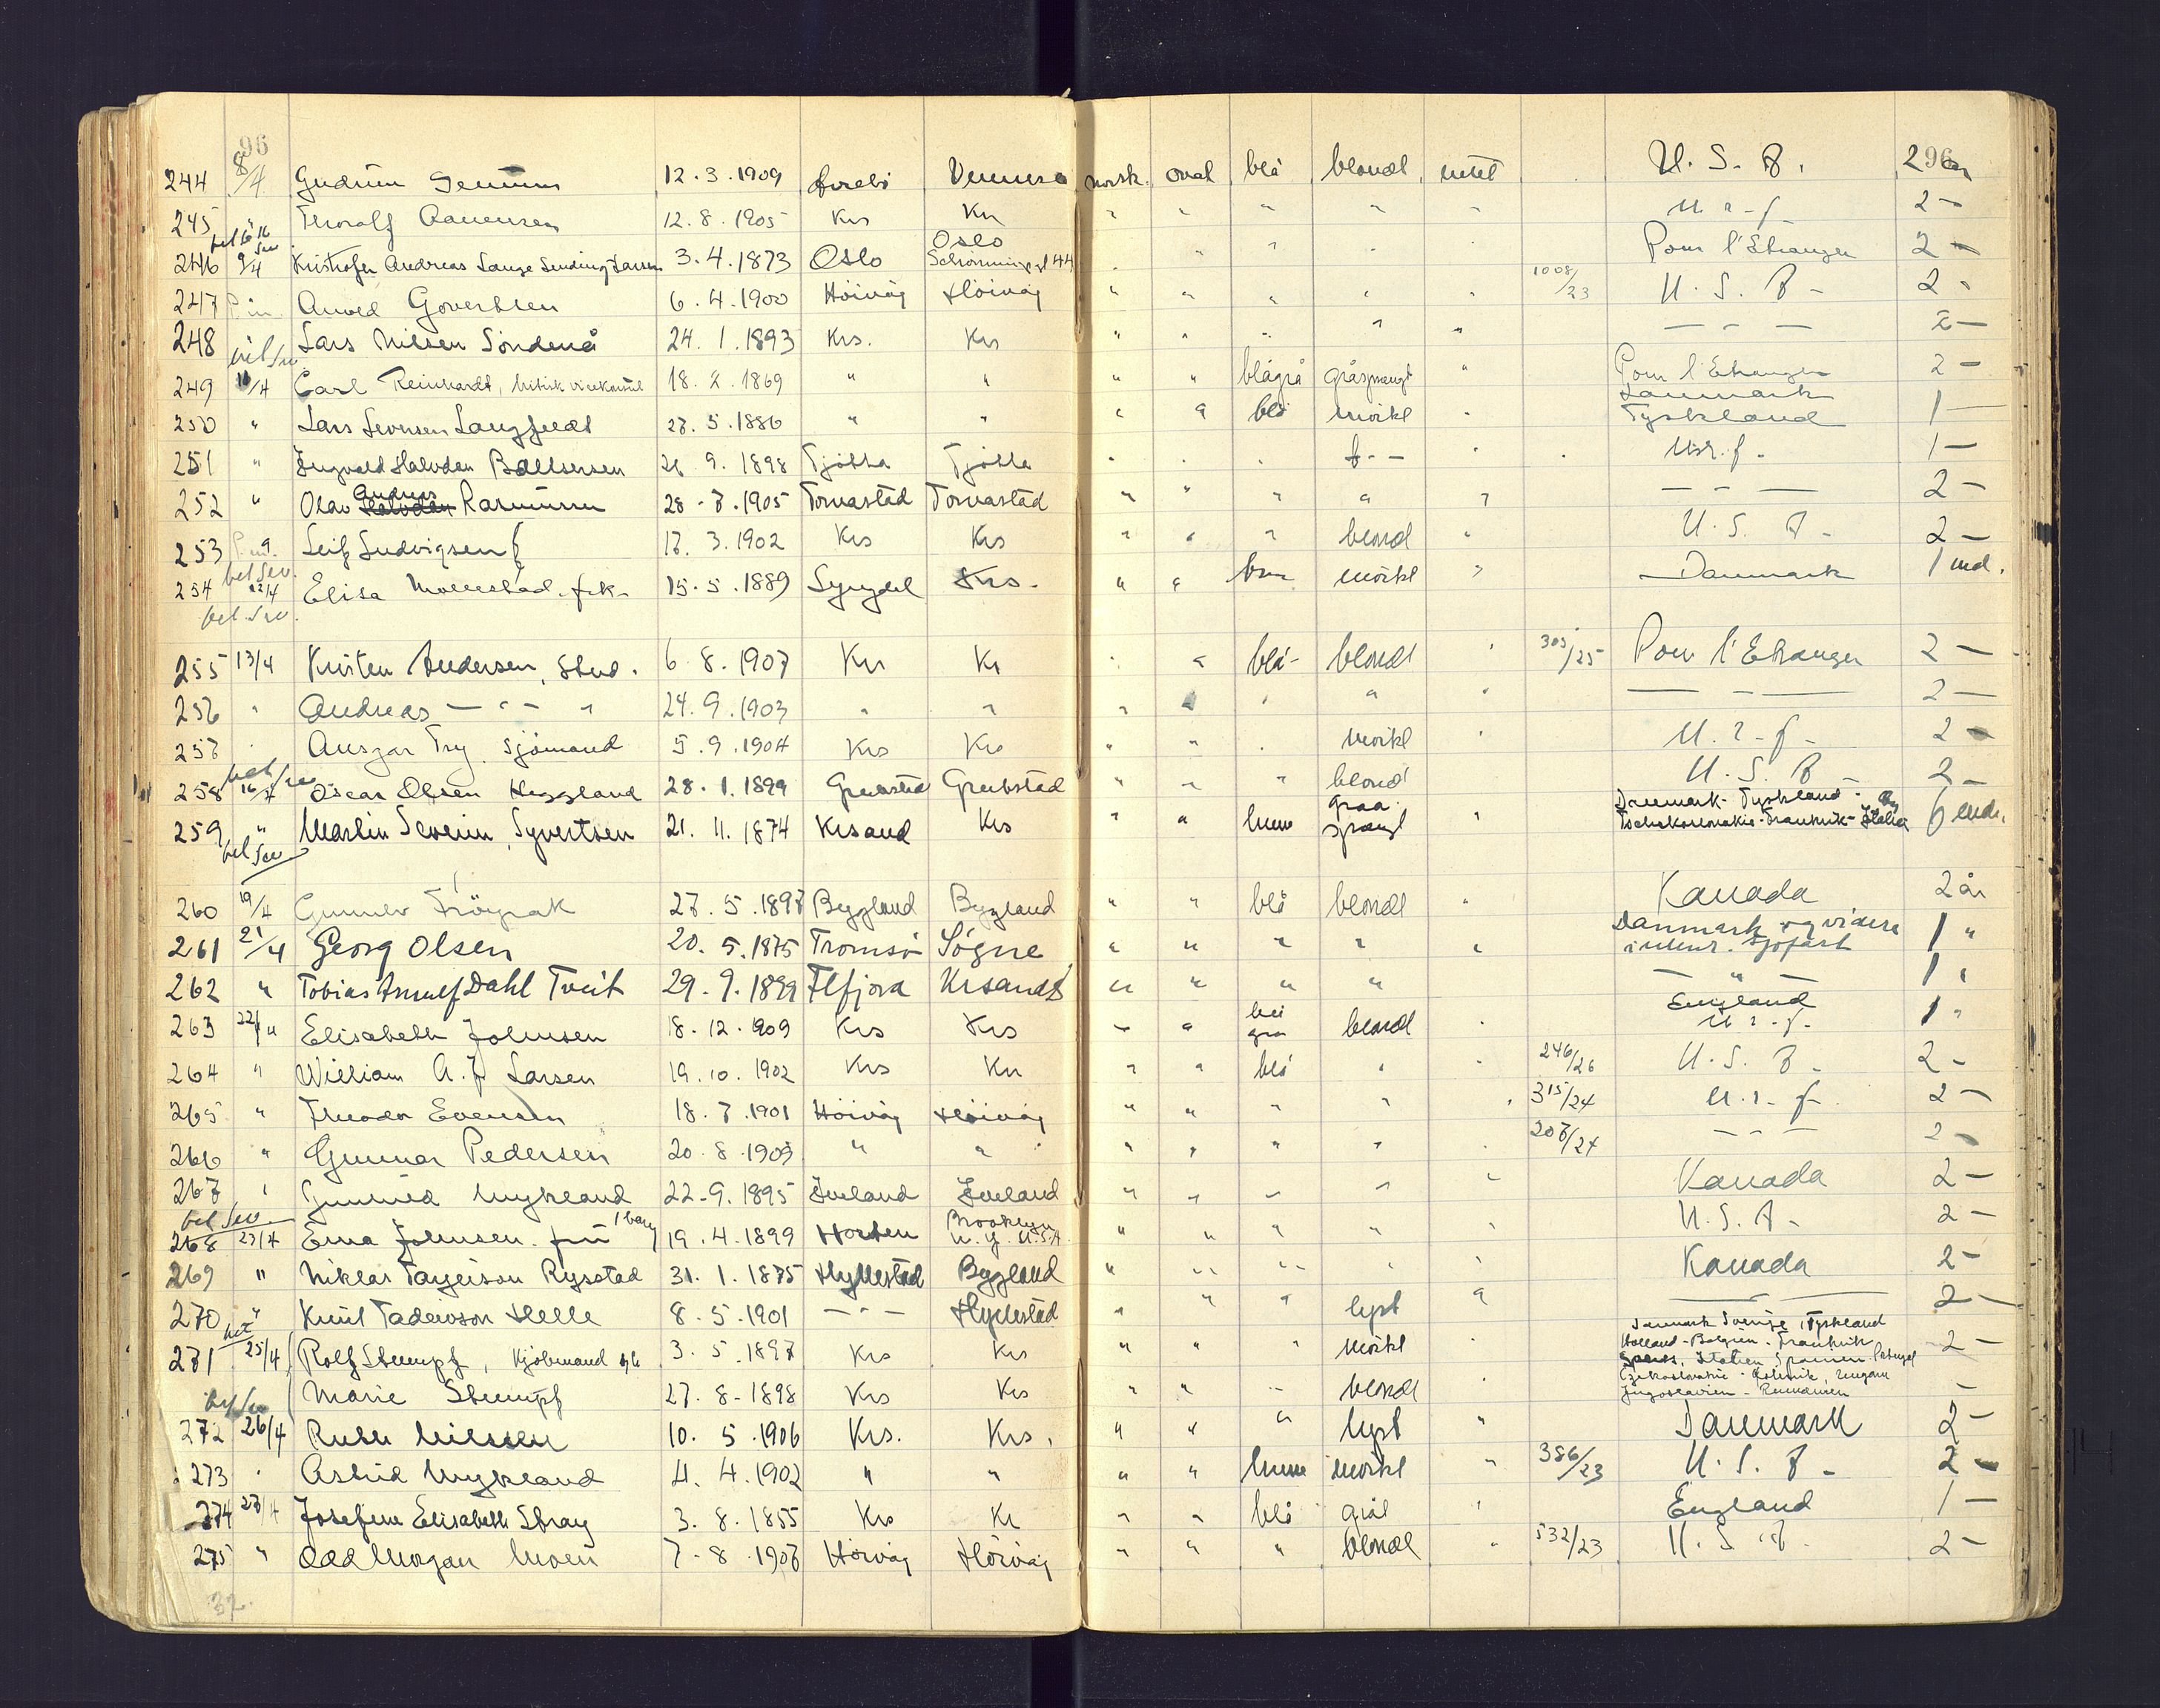 96 96
244 8/4 Gudrun 12.3.1909 Vennesla norsk. oval blå blondt intet U.S.A. 2 år
245 " Thoralf Aanensen 12.8.1905 Krs Kr " " " " " U.r.f. 2 —
bet Sev
246 9/4 Kristofer Andreas Lange Sending Larsen 3.4.1873 Oslo Oslo " " " " Pour l'Etranger 2 —
247 P.m. Arved Govertsen 6.4.1900 Höivåg Höivåg " " " " " 1008/23 U.S.A. - 2 -
248 Lars Nilsen Söndenå 24.1.1893 Krs. Krs " " " " " — - — 2 —
bet Sev
249 10/4 Carl Reinhardt, britisk vicekonsul 18.2.1869 " " " " blågrå gråsprængt " Pour l'Etranger 2 —
250 " Lars Severnsen Langfeldt 27.5.1886 " " " " blå mörkt " Danmark Tyskland 1 —
251 " Ingvald Halvdan 26.9.1898 Tjötta Tjötta " " " f - - " U.r.f. 1 —
252 " Olav Andreas Halvdan Rasmussen 28-7.1905 Torvastad Torvastad " " " " " — - — 2 —
253 P.m. 9. Leif Ludvigsen 17.3.1902 Krs Krs " " " blond " U.S.A. - 2 —
bet Sev.
254 12/4 Elisa frk. 15.5.1889 Lyngdal Krs. " " brun mörkt " Danmark 1 md.
bet. Sev.
255 13/4 Kristen Andersen, Stud. 6.8.1907 Krs Kr " " blå- blondt " 303/25 Pour l'Etranger 2 —
256 " Andreas — " — " 24.9.1903 " " " " " " " — - — 2 —
257 " Ansgar Try. Sjömand 5.9.1904 Krs Krs " " " mörkt " U.r.f. - 2 —
bet Sev
258 16/4 Oscar Olsen Heggland 28.1.1899 Grimstad Grimstad " " " blond U.S.A. - 2 —
259 " Martin Severin Syvertsen 21.11.1874 Krsand Krs " " brune graa sprængt " Danmark - Tyskland - Tschekoslovakie - Frankrik - Italia 6 mdr.
bet Sev
260 19/4 Gunnar Fröysak 27.5.1897 Bygland Bygland " " blå blondt " Kanada 2 år
261 21/4 Georg Olsen 20.5.1875 Tromsö Søgne " " " " " Danmark og videre i utenr. sjøfart 1 "
262 " Tobias Arnulf Dahl Tveit 29.9.1899 Krsand S " " " " — " — 1 "
263 22/4 Elisabeth Johnsen 18.12.1909 Krs Krs " " blå grå blondt " England U.r.f. 1 "
264 " William A.J. Larsen 19.10.1902 Krs Kr " " blå " " 246/26 U.S.A. - 2 -
265 " Theodor Evensen 18.7.1901 Höivåg Höivåg " " " " " 315/24 U.r.f. 2 —
266 " Gunnar Pedersen 20.8.1903 " " " " " " " 207/24 — - — 2 —
267 " Gunvald Mykland 22.9.1895 Iveland Iveland " " " " " Kanada 2 —
bet Sev.
268 23/4 Erna Johnsen. fru 1 barn 19.4.1899 Horten Brooklyn N.Y. U.S.A. " " " " " U.S.A. - 2 —
269 " Niklas Targeison Rysstad 31.1.1875 Hyllestad Bygland " " " " " Kanada 2 —
270 " Knut Tadeivson Helle 8.5.1901 — " — Hyllestad " " " lyst " — — 2 —
bet
271 25/4 Rolf Stumpf, Kjöbmand og 3.5.1897 Krs Krs " " " mörkt " Danmark Sverige Tyskland Holland - Belgien - Frankrik Italien Spanien Portugal Ungarn Jugoslavien - Rumänien 2 —
bet Sev Marie Stumpf 27.8-1898 Krs Krs " " " blondt " —
272 26/4 Ruth Nielssen 10.5.1906 Krs. Krs. " " " lyst " Danmark 2 —
273 " Astrid Mykland 4.4.1902 " " " " brune mörkt " 386/23 U.S.A. - 2 —
274 27/4 Josefine Elisabeth Stray 3.8.1855 Krs Kr " " blå grått " England 1 —
275 " Odd Morgan Moen 7-8.1907 Höivåg Höivåg " " " blondt " 532/23 U.S.A. 2 —
32